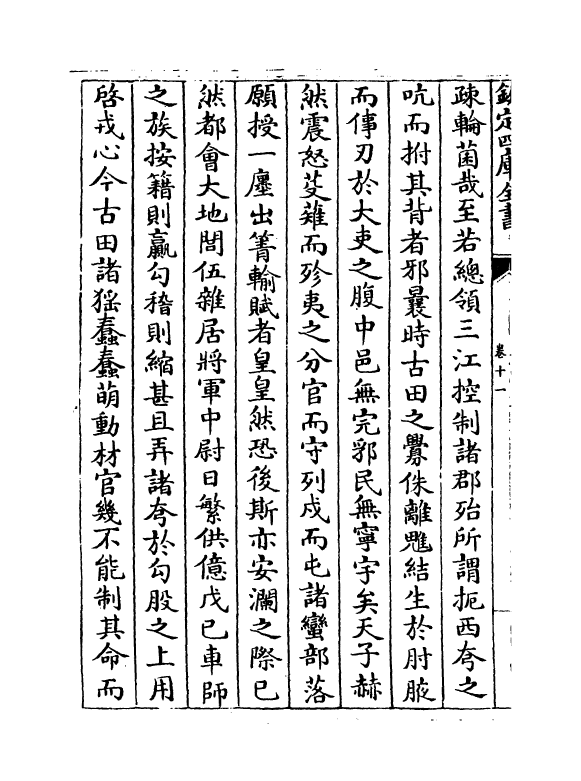 欽定四庫全書
卷十一
疎輪菌哉至若總領三江控制諸郡殆所謂扼西夸之
吭而拊其背者邪曩時古田之釁侏離魋結生於肘腋
而倳刃於大吏之腹中邑無完郛民無寧宇矣天子赫
然震怒芟薙而殄夷之分官而守列戍而屯諸蠻部落
願授一廛出箐輸賦者皇皇然恐後斯亦安瀾之際已
然都會大地閭伍雜居將軍中尉日繁供億戊己車師
之族按籍則贏勾稽則縮甚且弄諸夸於勾股之上用
啓戎心今古田諸猺蠢蠢萌動材官幾不能制其命而